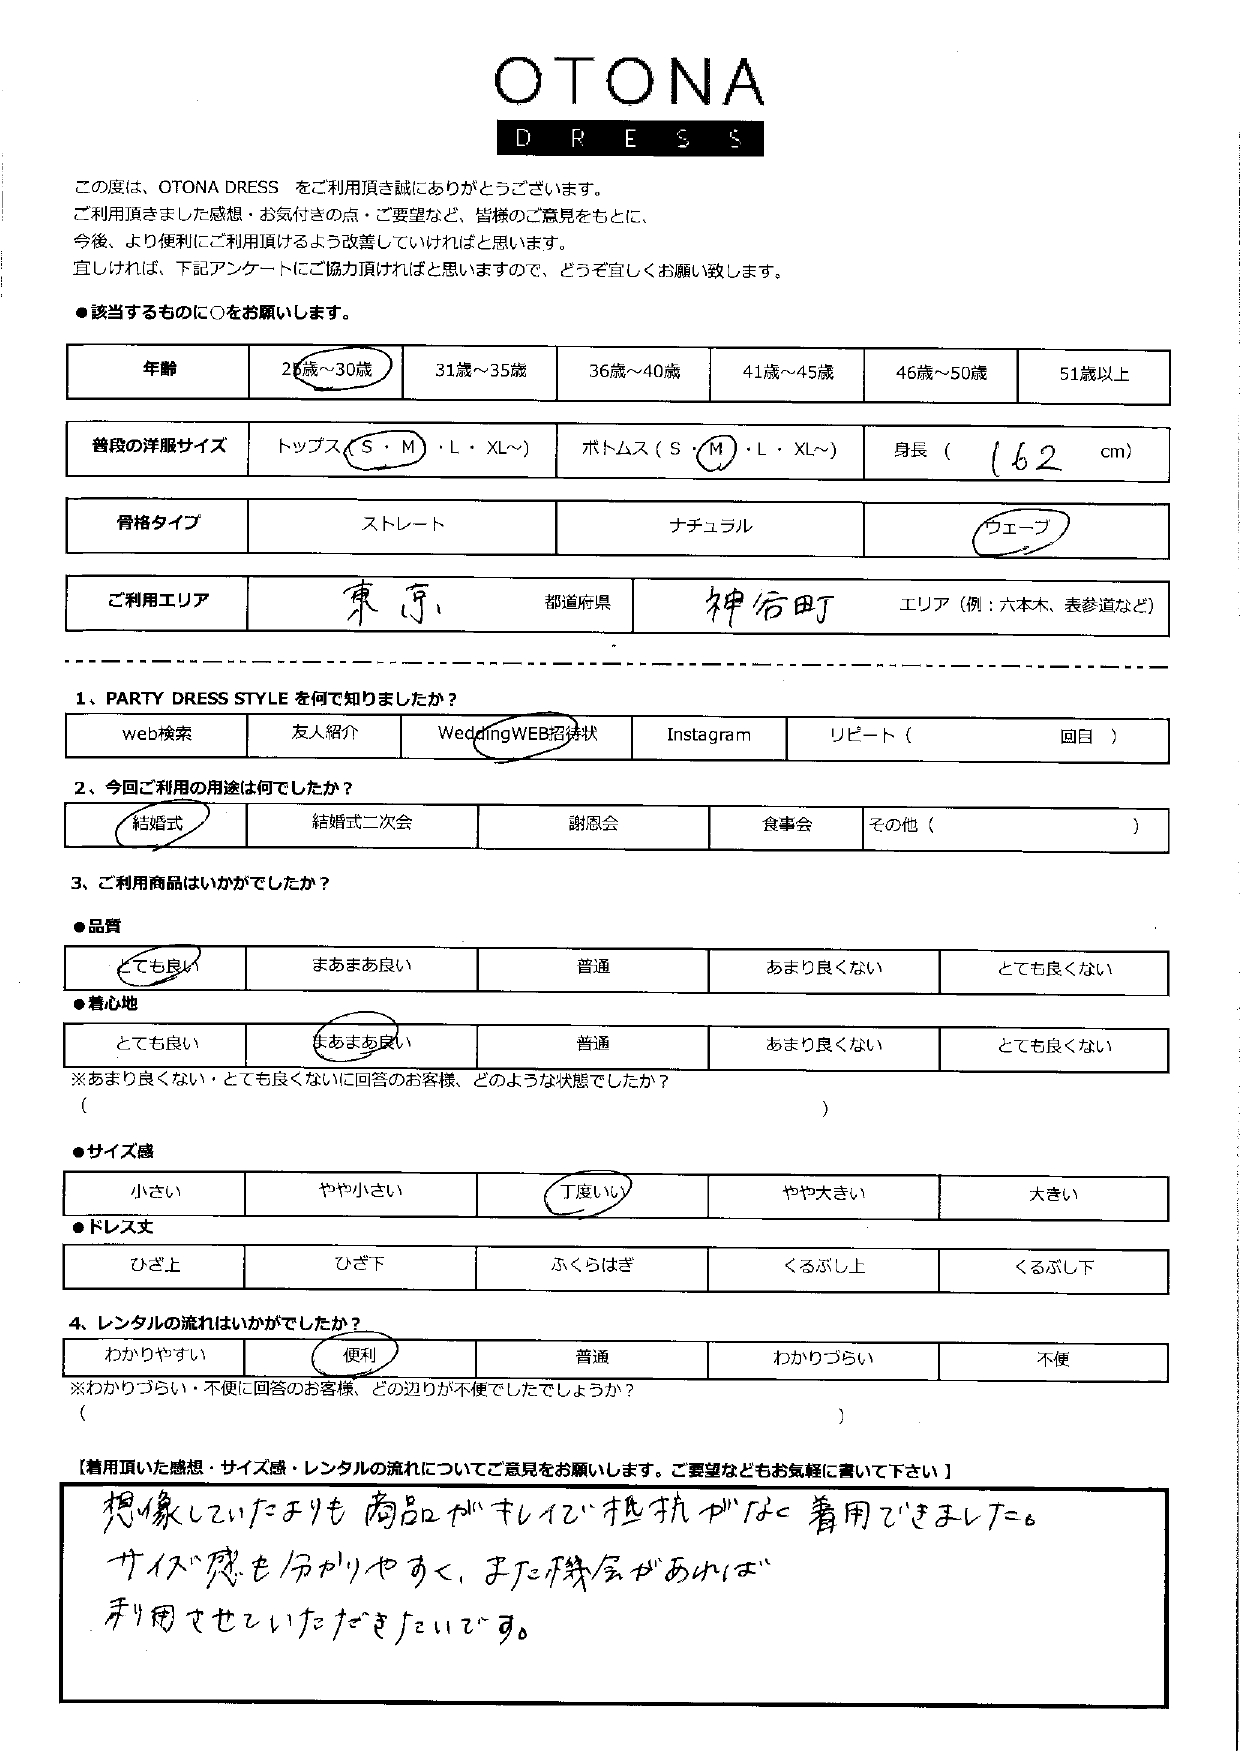 OTONA
DRESS
この度は、OTONA DRESS　をご利用頂き誠にありがとうございます。
ご利用頂きました感想・お気付きの点・ご要望など、皆様のご意見をもとに、
今後、より便利にご利用頂けるよう改善していければと思います。
宜しければ、下記アンケートにご協力頂ければと思いますので、どうぞ宜しくお願い致します。
●該当するものに○をお願いします。
年齢 25歳～30歳 31歳～35歳 36歳～40歳 41歳～45歳 46歳～50歳 51歳以上
普段の洋服サイズ トップス ( S ・ M ・ L ・ XL～) ボトムス ( S ・ M ・ L ・ XL～) 身長 ( 162 cm)
骨格タイプ ストレート ナチュラル ウェーブ
ご利用エリア 東京 都道府県 神谷町 エリア（例：六本木、表参道など）
1、PARTY DRESS STYLE を何で知りましたか？
web検索 友人紹介 WeddingWEB招待状 Instagram リピート（ 回目 ）
2、今回ご利用の用途は何でしたか？
結婚式 結婚式二次会 謝恩会 食事会 その他（ ）
3、ご利用商品はいかがでしたか？
●品質
とても良い まあまあ良い 普通 あまり良くない とても良くない
●着心地
とても良い まあまあ良い 普通 あまり良くない とても良くない
※あまり良くない・とても良くないに回答のお客様、どのような状態でしたか？
（ ）
●サイズ感
小さい やや小さい 丁度いい やや大きい 大きい
●ドレス丈
ひざ上 ひざ下 ふくらはぎ くるぶし上 くるぶし下
4、レンタルの流れはいかがでしたか？
わかりやすい 便利 普通 わかりづらい 不便
※わかりづらい・不便に回答のお客様、どの辺りが不便でしたでしょうか？
（ ）
【着用頂いた感想・サイズ感・レンタルの流れについてご意見をお願いします。ご要望などもお気軽に書いて下さい 】
想像していたよりも商品がキレイで抵抗がなく着用できました。
サイズ感も分かりやすく、また機会があれば
利用させていただきたいです。